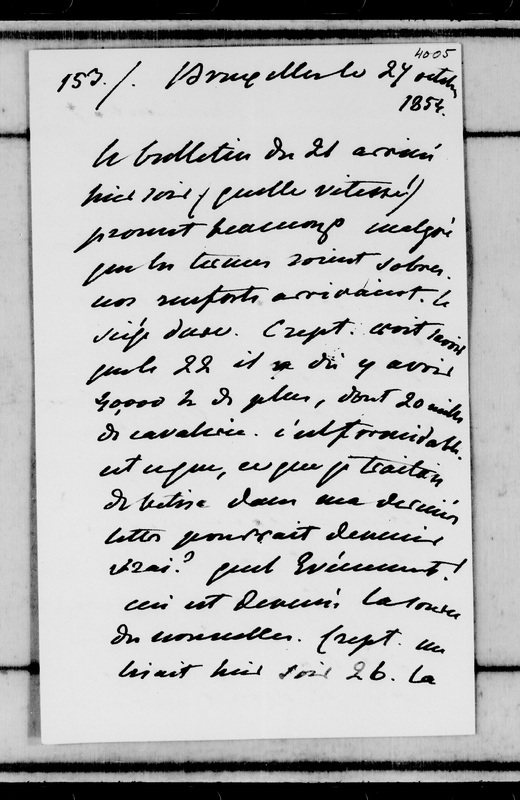 4005
153./. Bruxelles le 27 octobre
1854.
le bulletin du 21 arrivé
hier soir (quelle vitesse!)
promet beaucoup malgré
que les termes soient sobres.
nos renforts arrivaient. le
siège dure. Crept. croit savoir
que le 22 il a dû y avoir
40,000 h de plus, dont 20 milles
de cavalerie. c'est formidable.
est ce que, ce que je traitais
de bêtise dans ma dernière
lettre pourrait devenir
vrai? quel Evénement!
ceci est devenu la source
des nouvelles. Crept. me
disait hier soir 26. la